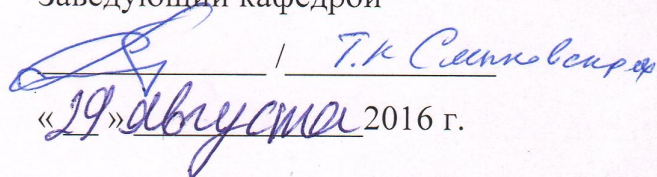 Заведующий кафедрой
/ Т.К Смыковская
«29» августа 2016 г.